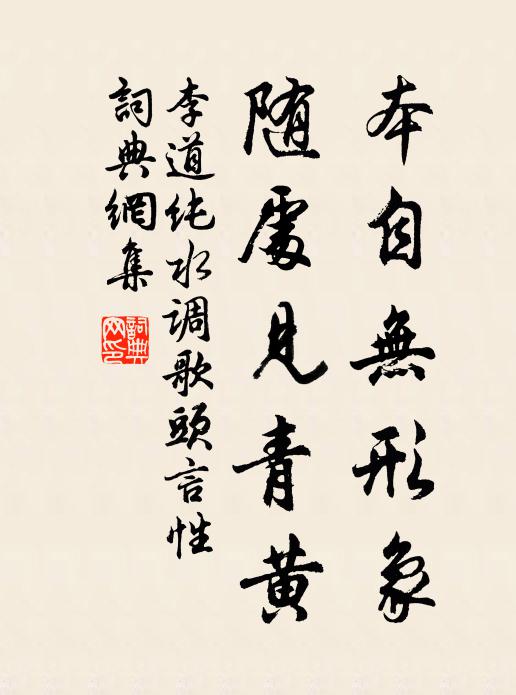 本自無形象
随處見青黄
李道纯水调歌頭言性
詞典網集
詞典网印